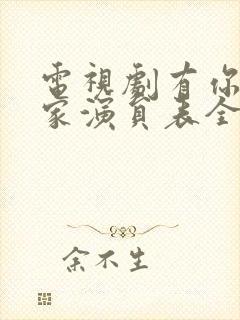 電視劇有你
家演員表全
余不生